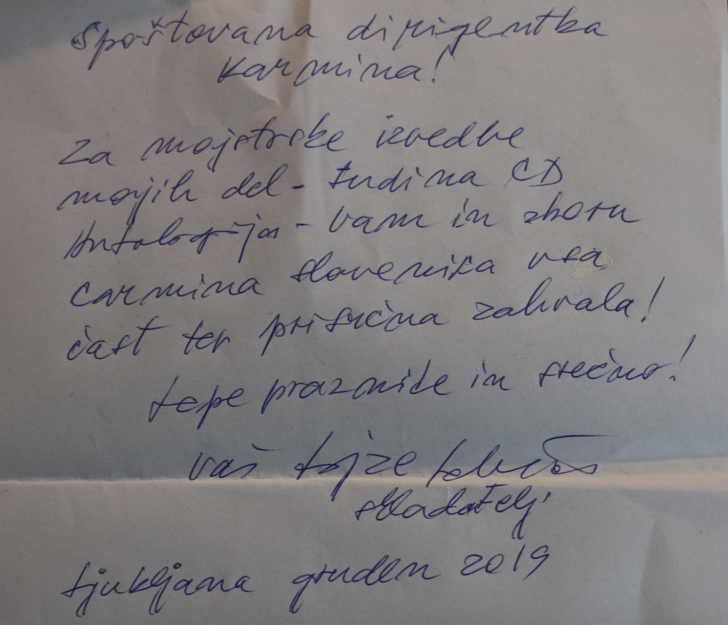 Spoštovana dirigentka
Karmina!
Za mojstrske izvedbe
mojih del - tudi na CD
Antologija - vam in zboru
Carmina Slovenica vsa
čast ter prisrčna zahvala!
Lepe praznike in srečno!
vaš Lojze Lebič
skladatelj
Ljubljana gruden 2019